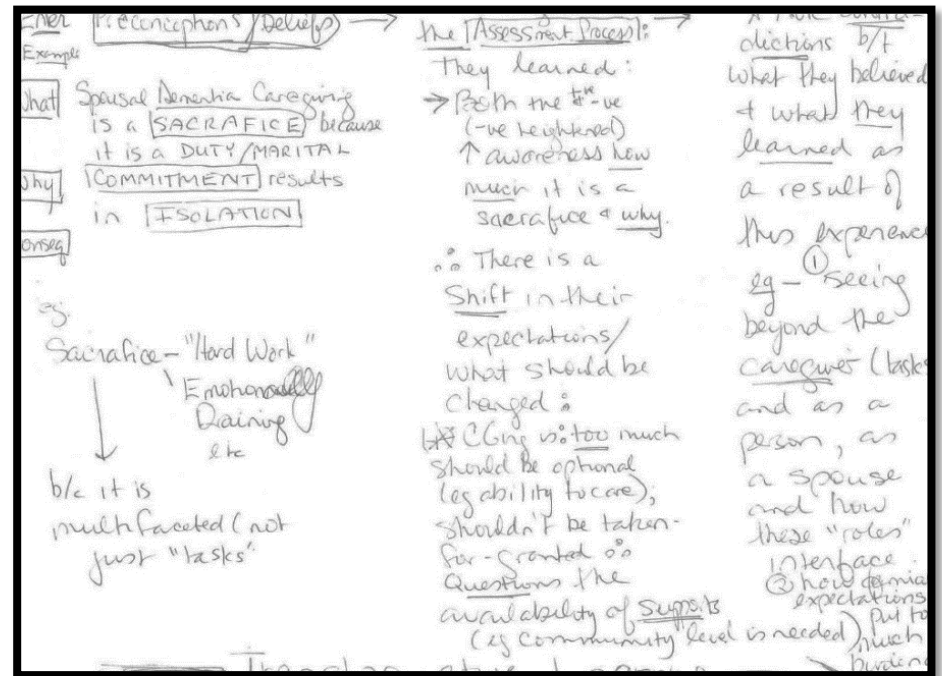 Enter Preconceptions/Beliefs →
Example
What Spousal Dementia Caregiving
is a SACRAFICE because
it is a DUTY/MARITAL
Why COMMITMENT results
in ISOLATION
Conseq
eg.
Sacrafice - "Hard Work"
Emotionally
Draining
etc
b/c it is
multifaceted (not
just "tasks"
the Assessment Process: →
They learned:
→ Both the +ve -ve
(-ve heightened)
↑ awareness how
much it is a
sacrafice & why.
∴ There is a
Shift in their
expectations/
what should be
changed:
CGng is: too much
should be optional
(eg ability to care);
shouldn't be taken-
for-granted ∴
Questions the
availability of supports
(eg community level is needed)
dictions b/t
what they believed
& what they
learned as
a result of
this experience
eg - ① seeing
beyond the
caregiver (tasks
and as a
person, as
a spouse
and how
these "roles"
interface.
② how
expectations
put to
much
burden